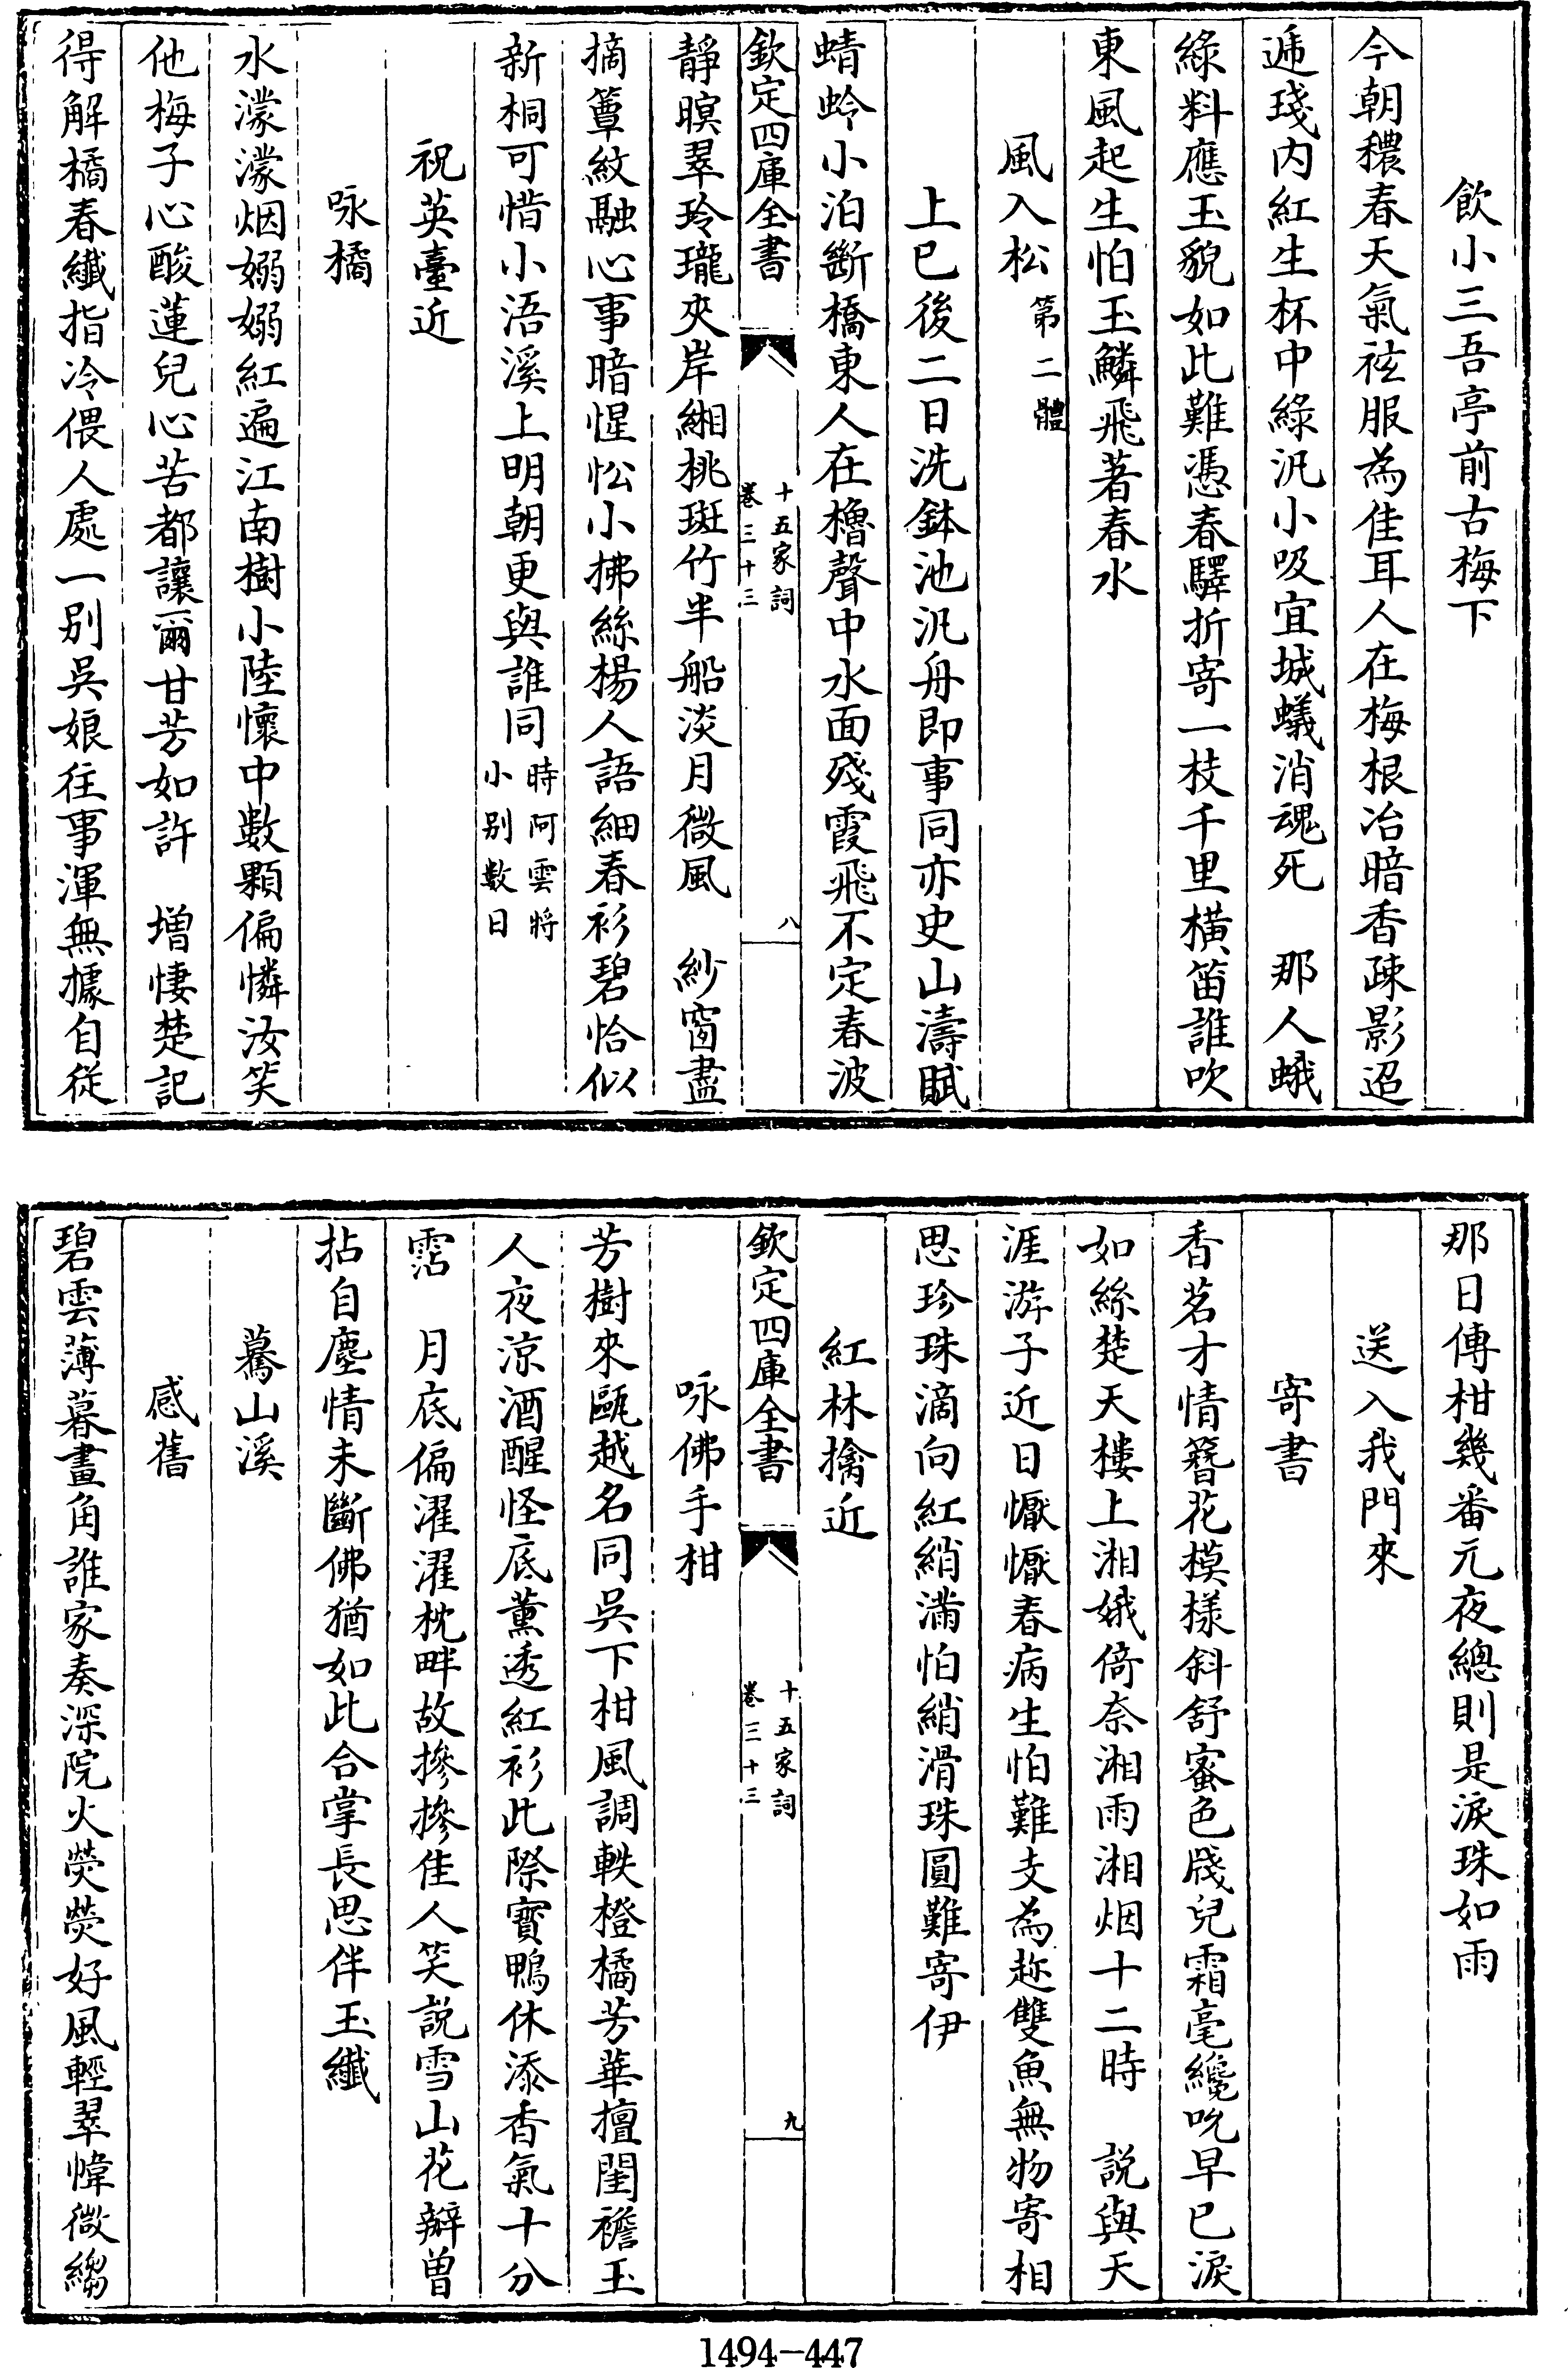 飲小三吾亭前古梅下
今朝穠春天氣袨服為佳耳人在梅根冶暗香疎影迢
遞琖内紅生杯中綠汎小吸宜城蟻消魂死　那人蛾
綠料應玉貌如此難憑春驛折寄一枝千里橫笛誰吹
東風起生怕玉鱗飛著春水
風入松第二體
上巳後二日洗鉢池汎舟即事同亦史山濤賦
蜻蛉小泊斷橋東人在櫓聲中水面殘霞飛不定春波
欽定四庫全書
十五家詞
卷三十三
八
靜暝翠玲瓏夾岸緗桃斑竹半船淡月微風　紗窗盡
摘簟紋融心事暗惺忪小拂絲楊人語細春衫碧恰似
新桐可惜小浯溪上明朝更與誰同時阿雲將
小别數日
祝英臺近
咏橘
水濛濛烟嫋嫋紅遍江南樹小陸懷中數顆偏憐汝笑
他梅子心酸蓮兒心苦都讓爾甘芳如許　增悽楚記
得解橘春纖指冷偎人處一别吳娘往事渾無據自從
那日傳柑幾番元夜總則是淚珠如雨
送入我門來
寄書
香茗才情簪花模樣斜舒蜜色牋兒霜毫纔吮早已淚
如絲楚天樓上湘娥倚奈湘雨湘烟十二時　説與天
涯游子近日懨懨春病生怕難支為趂雙魚無物寄相
思珍珠滴向紅綃滿怕綃滑珠圓難寄伊
紅林擒近
欽定四庫全書
十五家詞
卷三十三
九
咏佛手柑
芳樹來甌越名同吳下柑風調軼橙橘芳華擅閨襜玉
人夜涼酒醒怪底薰透紅衫此際寶鴨休添香氣十分
霑　月底偏濯濯枕畔故摻摻佳人笑説雪山花辦曽
拈自塵情未斷佛猶如此合掌長思伴玉纖
驀山溪
感舊
碧雲薄暮畫角誰家奏深院火熒熒好風輕翠幃微縐
1494-447